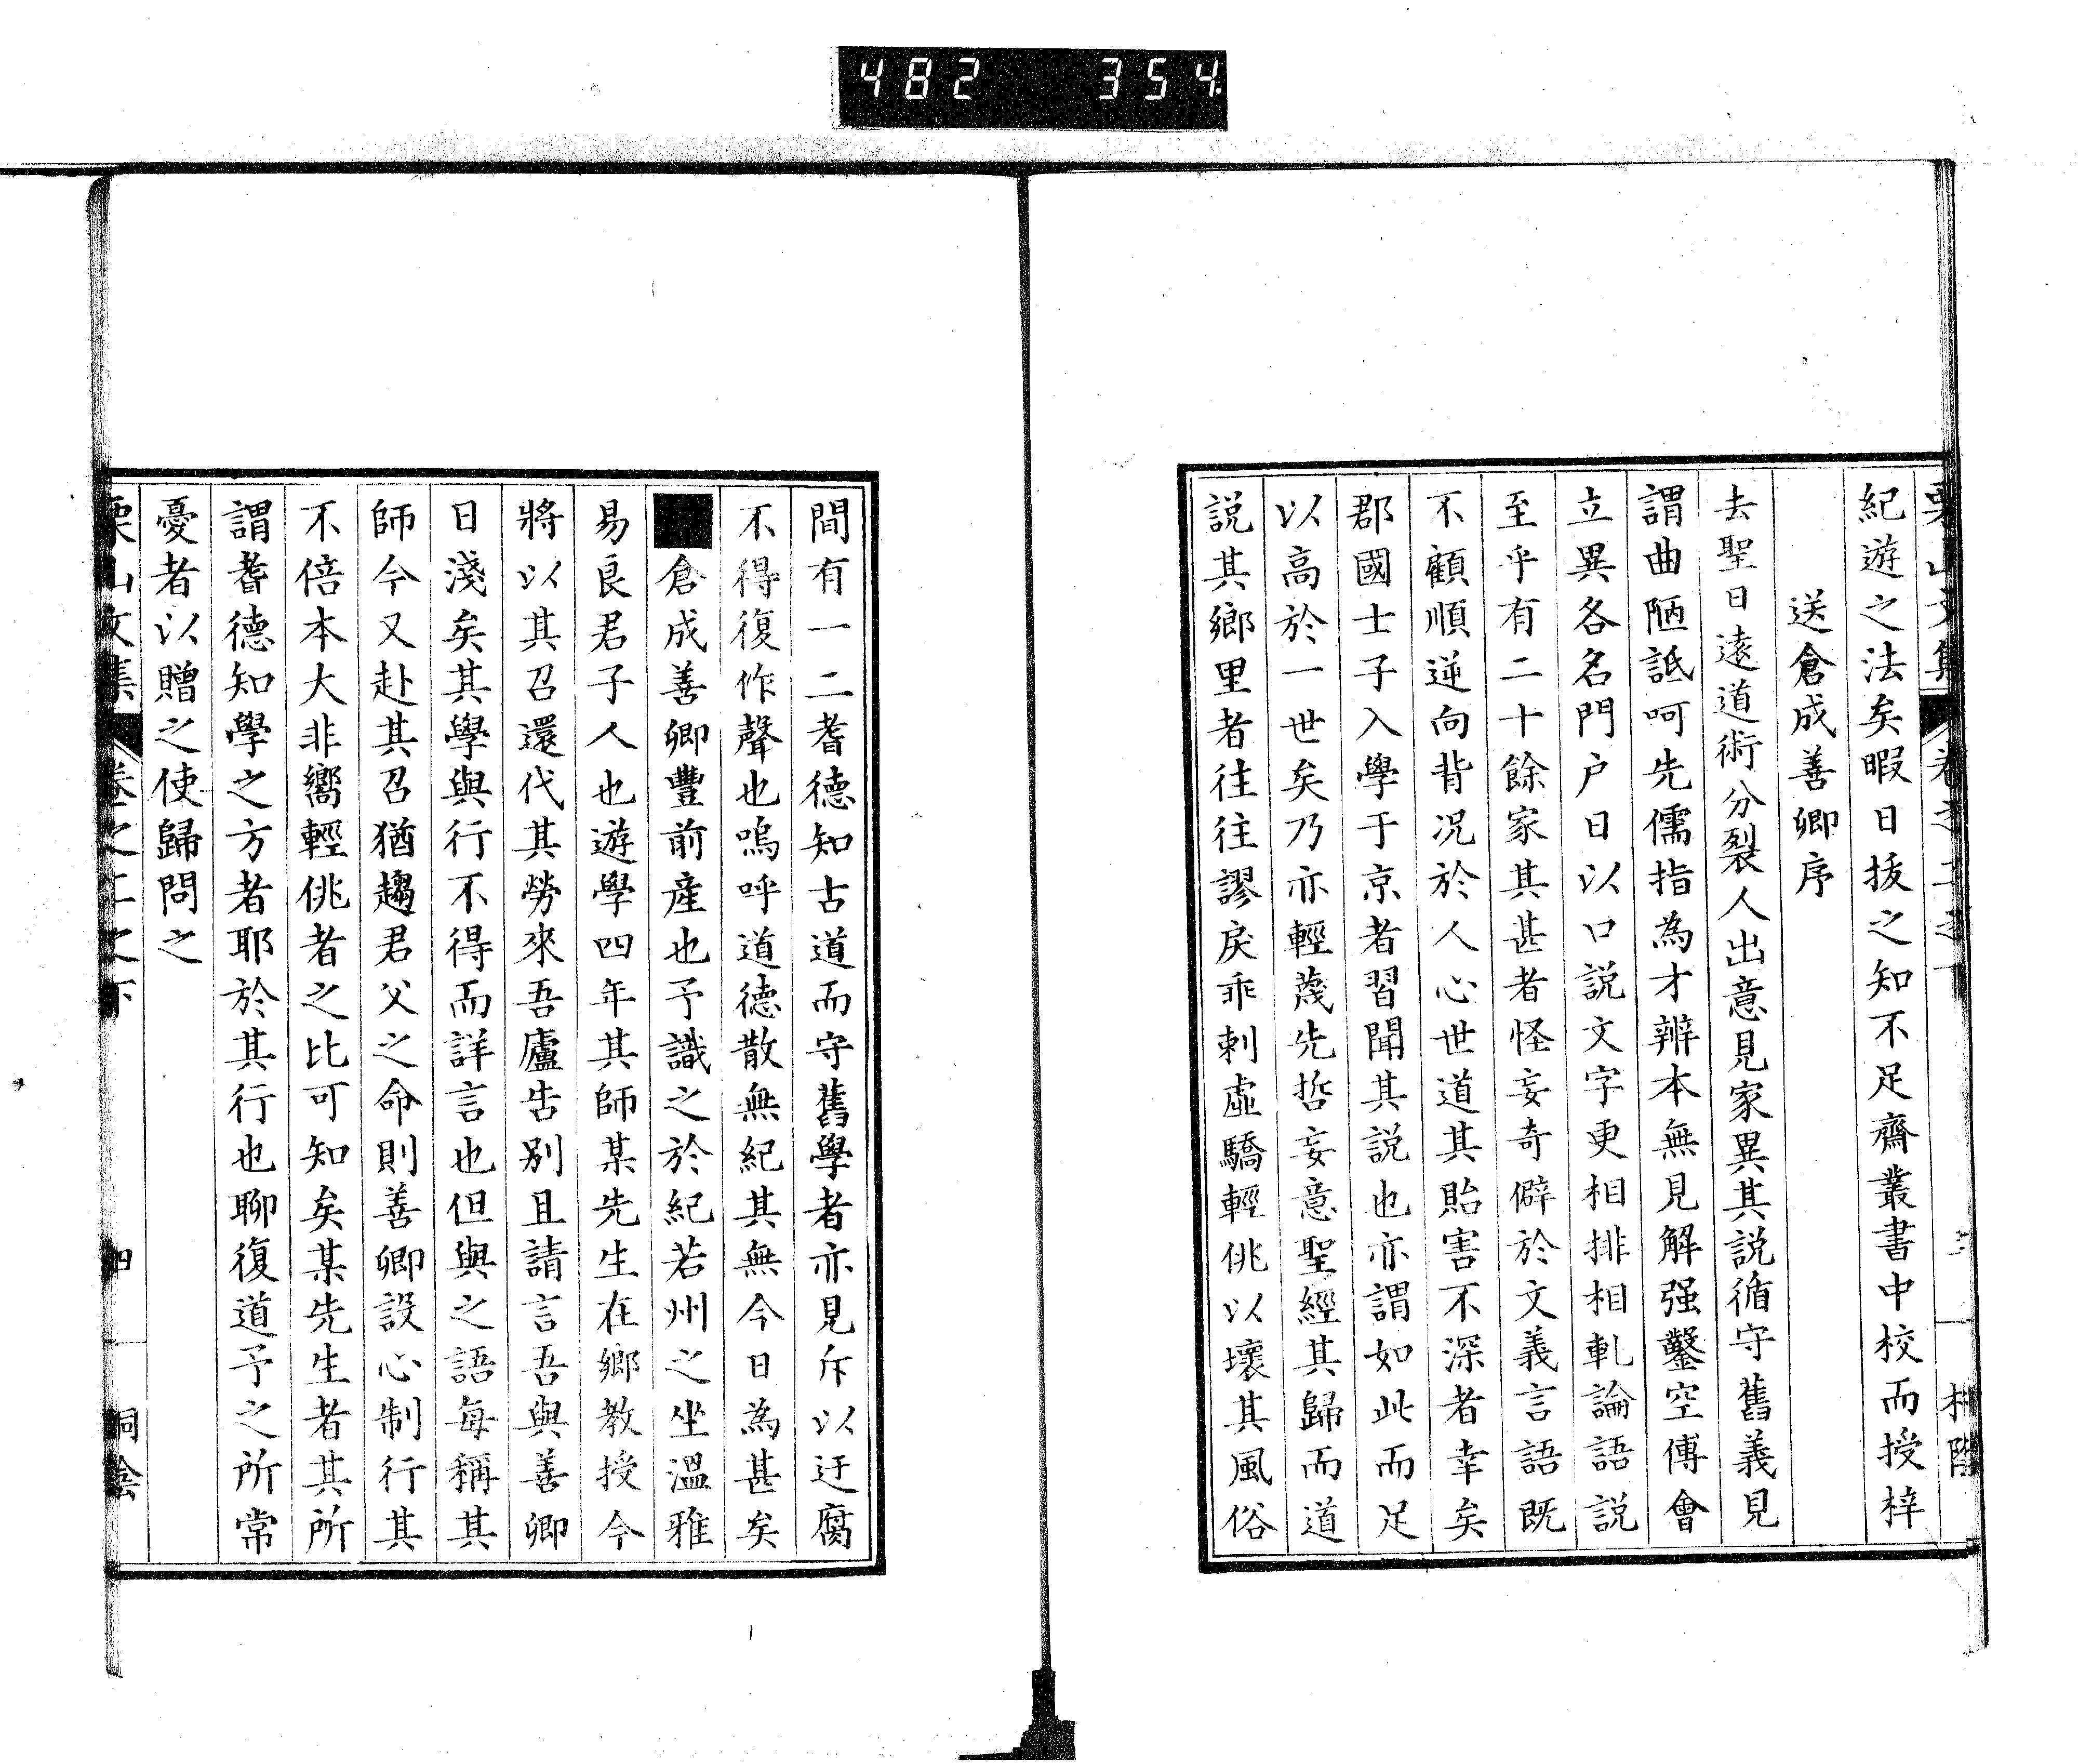 482 354.
紀遊之法矣暇日拔之知不足齋叢書中校而授梓
送倉成善卿序
去聖日遠道術分裂人出意見家異其説循守舊義見
謂曲陋詆呵先儒指為才辨本無見解强鑿空傅會
立異各名門户日以口説文字更相排相軋論語説
至乎有二十餘家其甚者怪妄奇僻於文義言語既
不顧順逆向背况於人心世道其貽害不深者幸矣
郡國士子入學于京者習聞其説也亦謂如此而足
以高於一世矣乃亦輕蔑先哲妄意聖經其歸而道
説其鄉里者往往謬戾乖剌虛驕輕佻以壞其風俗
間有一二耆德知古道而守舊學者亦見斥以迂腐
不得復作聲也嗚呼道德散無紀其無今日為甚矣
倉成善卿豐前産也予識之於紀若州之坐溫雅
易良君子人也遊學四年其師某先生在鄉教授今
將以其召還代其勞來吾廬告別且請言吾與善卿
日淺矣其學與行不得而詳言也但與之語每稱其
師今又赴其召猶趨君父之命則善卿設心制行其
不倍本大非嚮輕佻者之比可知矣某先生者其所
謂耆德知學之方者耶於其行也聊復道予之所常
憂者以贈之使歸問之
栗山文集 卷之二之下 四 桐陰